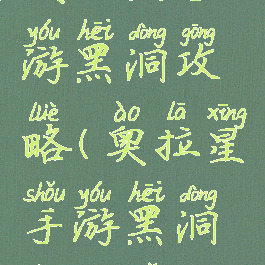 yóu hēi dòng gōng
游黑洞攻
lüè ào lā xīng
略(奥拉星
shǒu yóu hēi dòng
手游黑洞